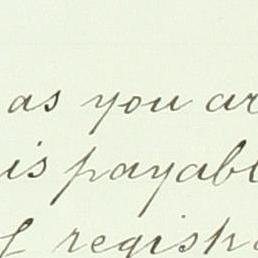 as you ar
is payabl
f regist